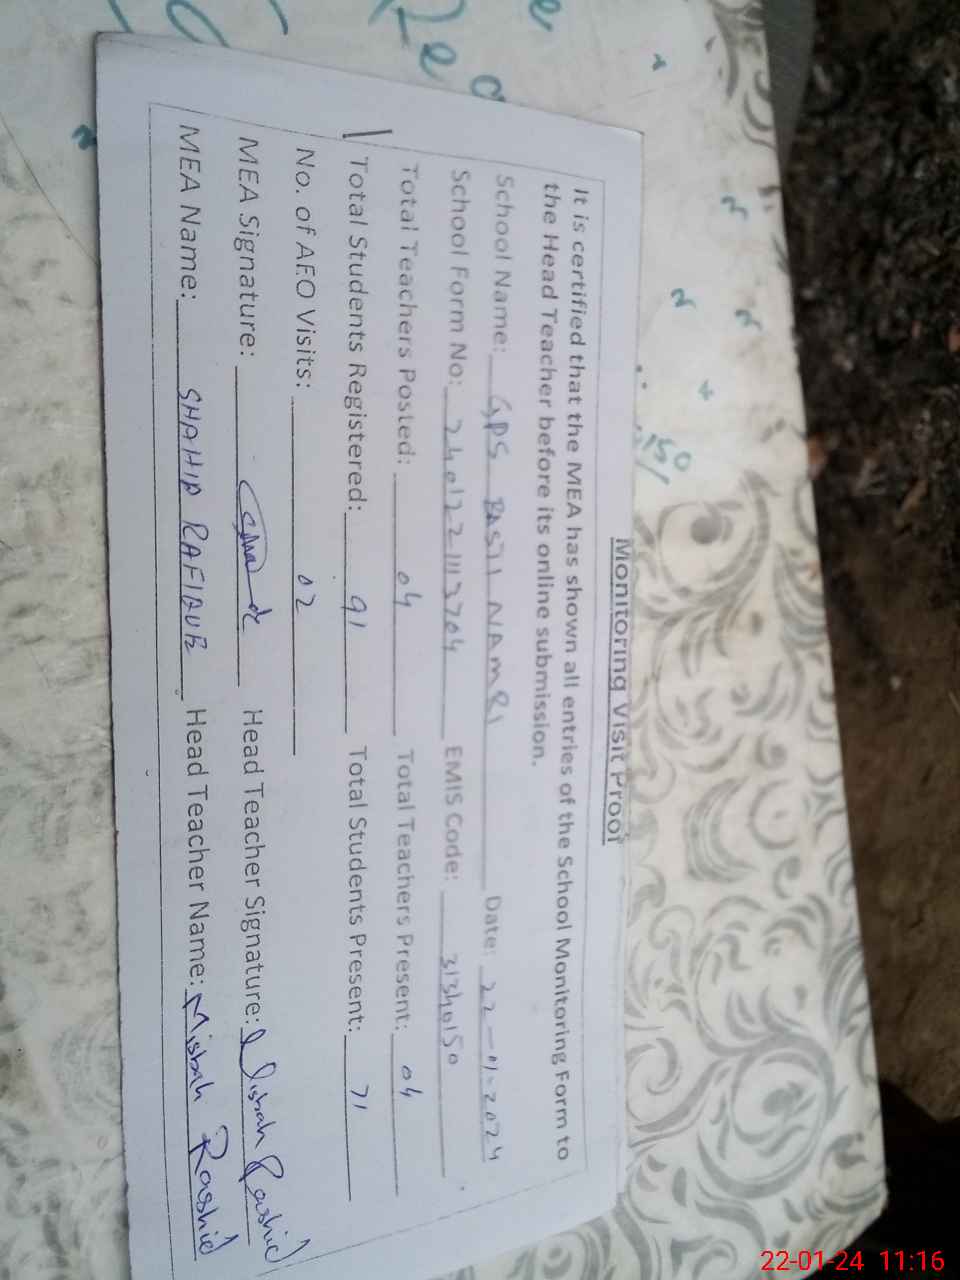 Monitoring Visit Proof
It is certified that the MEA has shown all entries of the School Monitoring Form to
the Head Teacher before its online submission.
School Name: GPS BASTI NAMRI Date: 22-11-2024
School Form No: EMIS Code: 31340150
Total Teachers Posted: 04 Total Teachers Present: 04
Total Students Registered: 91 Total Students Present: 71
No. of AEO Visits: 02
MEA Signature: Head Teacher Signature: Misbah Rashid
MEA Name: SHAHID RAFIQUE Head Teacher Name: Misbah Rashid
150
22-01-24 11:16